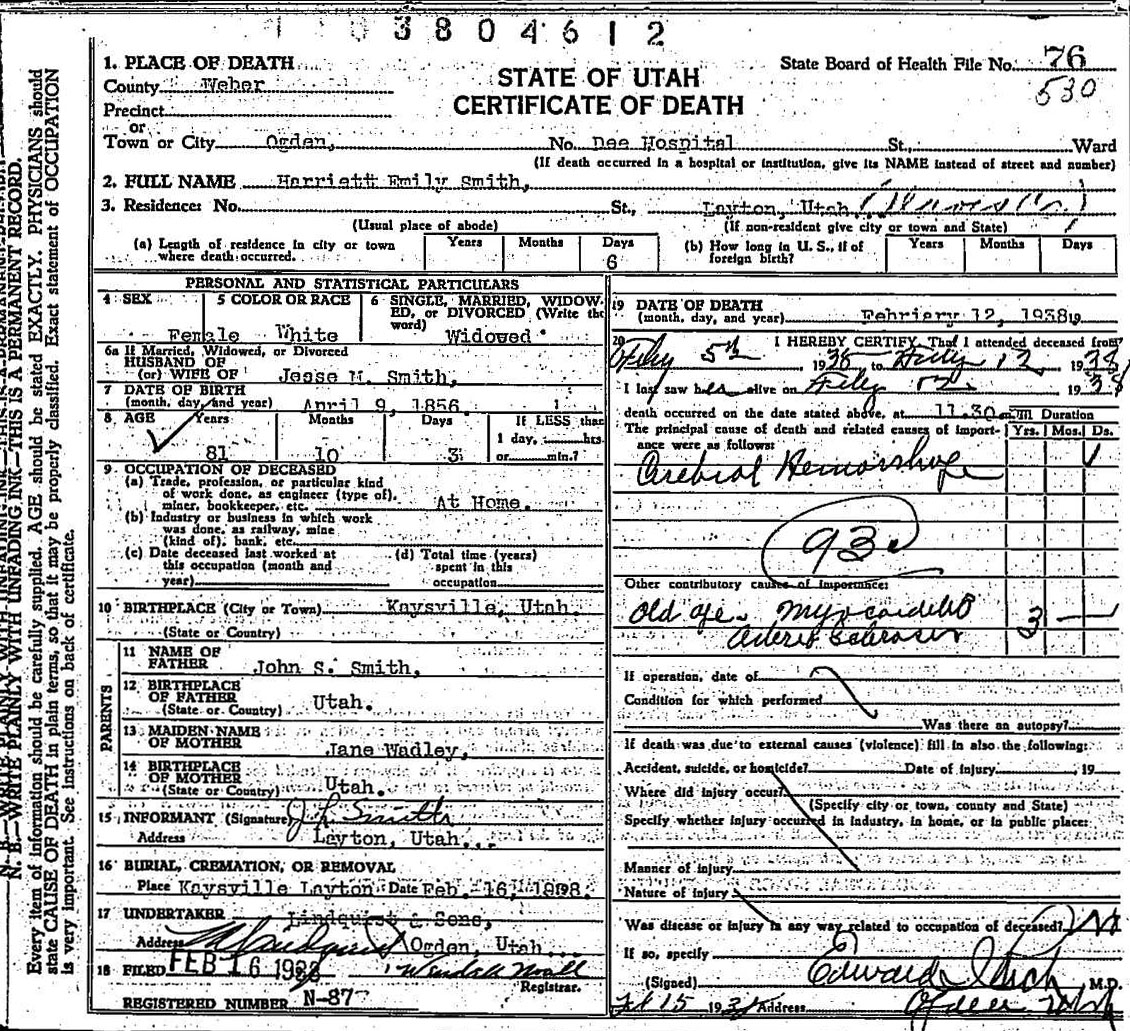 3 8 0 4 6 1 2
1. PLACE OF DEATH
County Weber
Precinct
or
Town or City Ogden, No. Dee Hospital St., Ward
(If death occurred in a hospital or institution, give its NAME instead of street and number)
STATE OF UTAH
CERTIFICATE OF DEATH
State Board of Health File No. 76
530
2. FULL NAME Harriett Emily Smith,
3. Residence: No. St., Layton, Utah, (Davis Co.)
(Usual place of abode) (If non-resident give city or town and State)
(a) Length of residence in city or town where death occurred. Years Months Days 6
(b) How long in U. S., if of foreign birth? Years Months Days
PERSONAL AND STATISTICAL PARTICULARS
4 SEX Female
5 COLOR OR RACE White
6 SINGLE, MARRIED, WIDOWED, or DIVORCED (Write the word) Widowed
6a If Married, Widowed, or Divorced
HUSBAND OF
(or) WIFE OF Jesse M. Smith,
7 DATE OF BIRTH
(month, day, and year) April 9, 1856.
8 AGE Years Months Days If LESS than
1 day, hrs.
81 10 3 or min.?
9. OCCUPATION OF DECEASED
(a) Trade, profession, or particular kind
of work done, as engineer (type of),
miner, bookkeeper, etc. At Home.
(b) Industry or business in which work
was done, as railway, mine
(kind of), bank, etc.
(c) Date deceased last worked at
this occupation (month and
year)
(d) Total time (years)
spent in this
occupation
10 BIRTHPLACE (City or Town) Kaysville, Utah.
(State or Country)
PARENTS
11 NAME OF
FATHER John S. Smith,
12 BIRTHPLACE
OF FATHER Utah.
(State or Country)
13 MAIDEN NAME
OF MOTHER Jane Wadley,
14 BIRTHPLACE
OF MOTHER
(State or Country) Utah.
15 INFORMANT (Signature) J L Smith
Address Layton, Utah.
16 BURIAL, CREMATION, OR REMOVAL
Place Kaysville Layton Date Feb. 16, 1898.
17 UNDERTAKER Lindquist & Sons,
Address Ogden, Utah
18 FILED FEB 16 1938 Wendell Noall
Registrar.
REGISTERED NUMBER N-87
19 DATE OF DEATH
(month, day, and year) Febriery 12, 1938 19
20 I HEREBY CERTIFY, That I attended deceased from
Feby 5th 1938 to Feby 12, 1938
I last saw her alive on Feby 12 1938
death occurred on the date stated above, at 11.30 m Duration
The principal cause of death and related causes of importance were as follows: Yrs. Mos. Ds.
Cerebral Hemorrhage 1
93
Other contributory causes of importance:
Old age - Myocarditis
Arterio Sclerosis 3
If operation, date of
Condition for which performed
Was there an autopsy?
If death was due to external causes (violence) fill in also the following:
Accident, suicide, or homicide? Date of injury , 19
Where did injury occur?
(Specify city or town, county and State)
Specify whether injury occurred in industry, in home, or in public place:
Manner of injury
Nature of injury
Was disease or injury in any way related to occupation of deceased? No
If so, specify
(Signed) Edward M.D.
Feb 15 1938 Address Ogden Utah
N. B.—WRITE PLAINLY WITH UNFADING INK—THIS IS A PERMANENT RECORD.
Every item of information should be carefully supplied. AGE should be stated EXACTLY. PHYSICIANS should
state CAUSE OF DEATH in plain terms, so that it may be properly classified. Exact statement of OCCUPATION
is very important. See instructions on back of certificate.